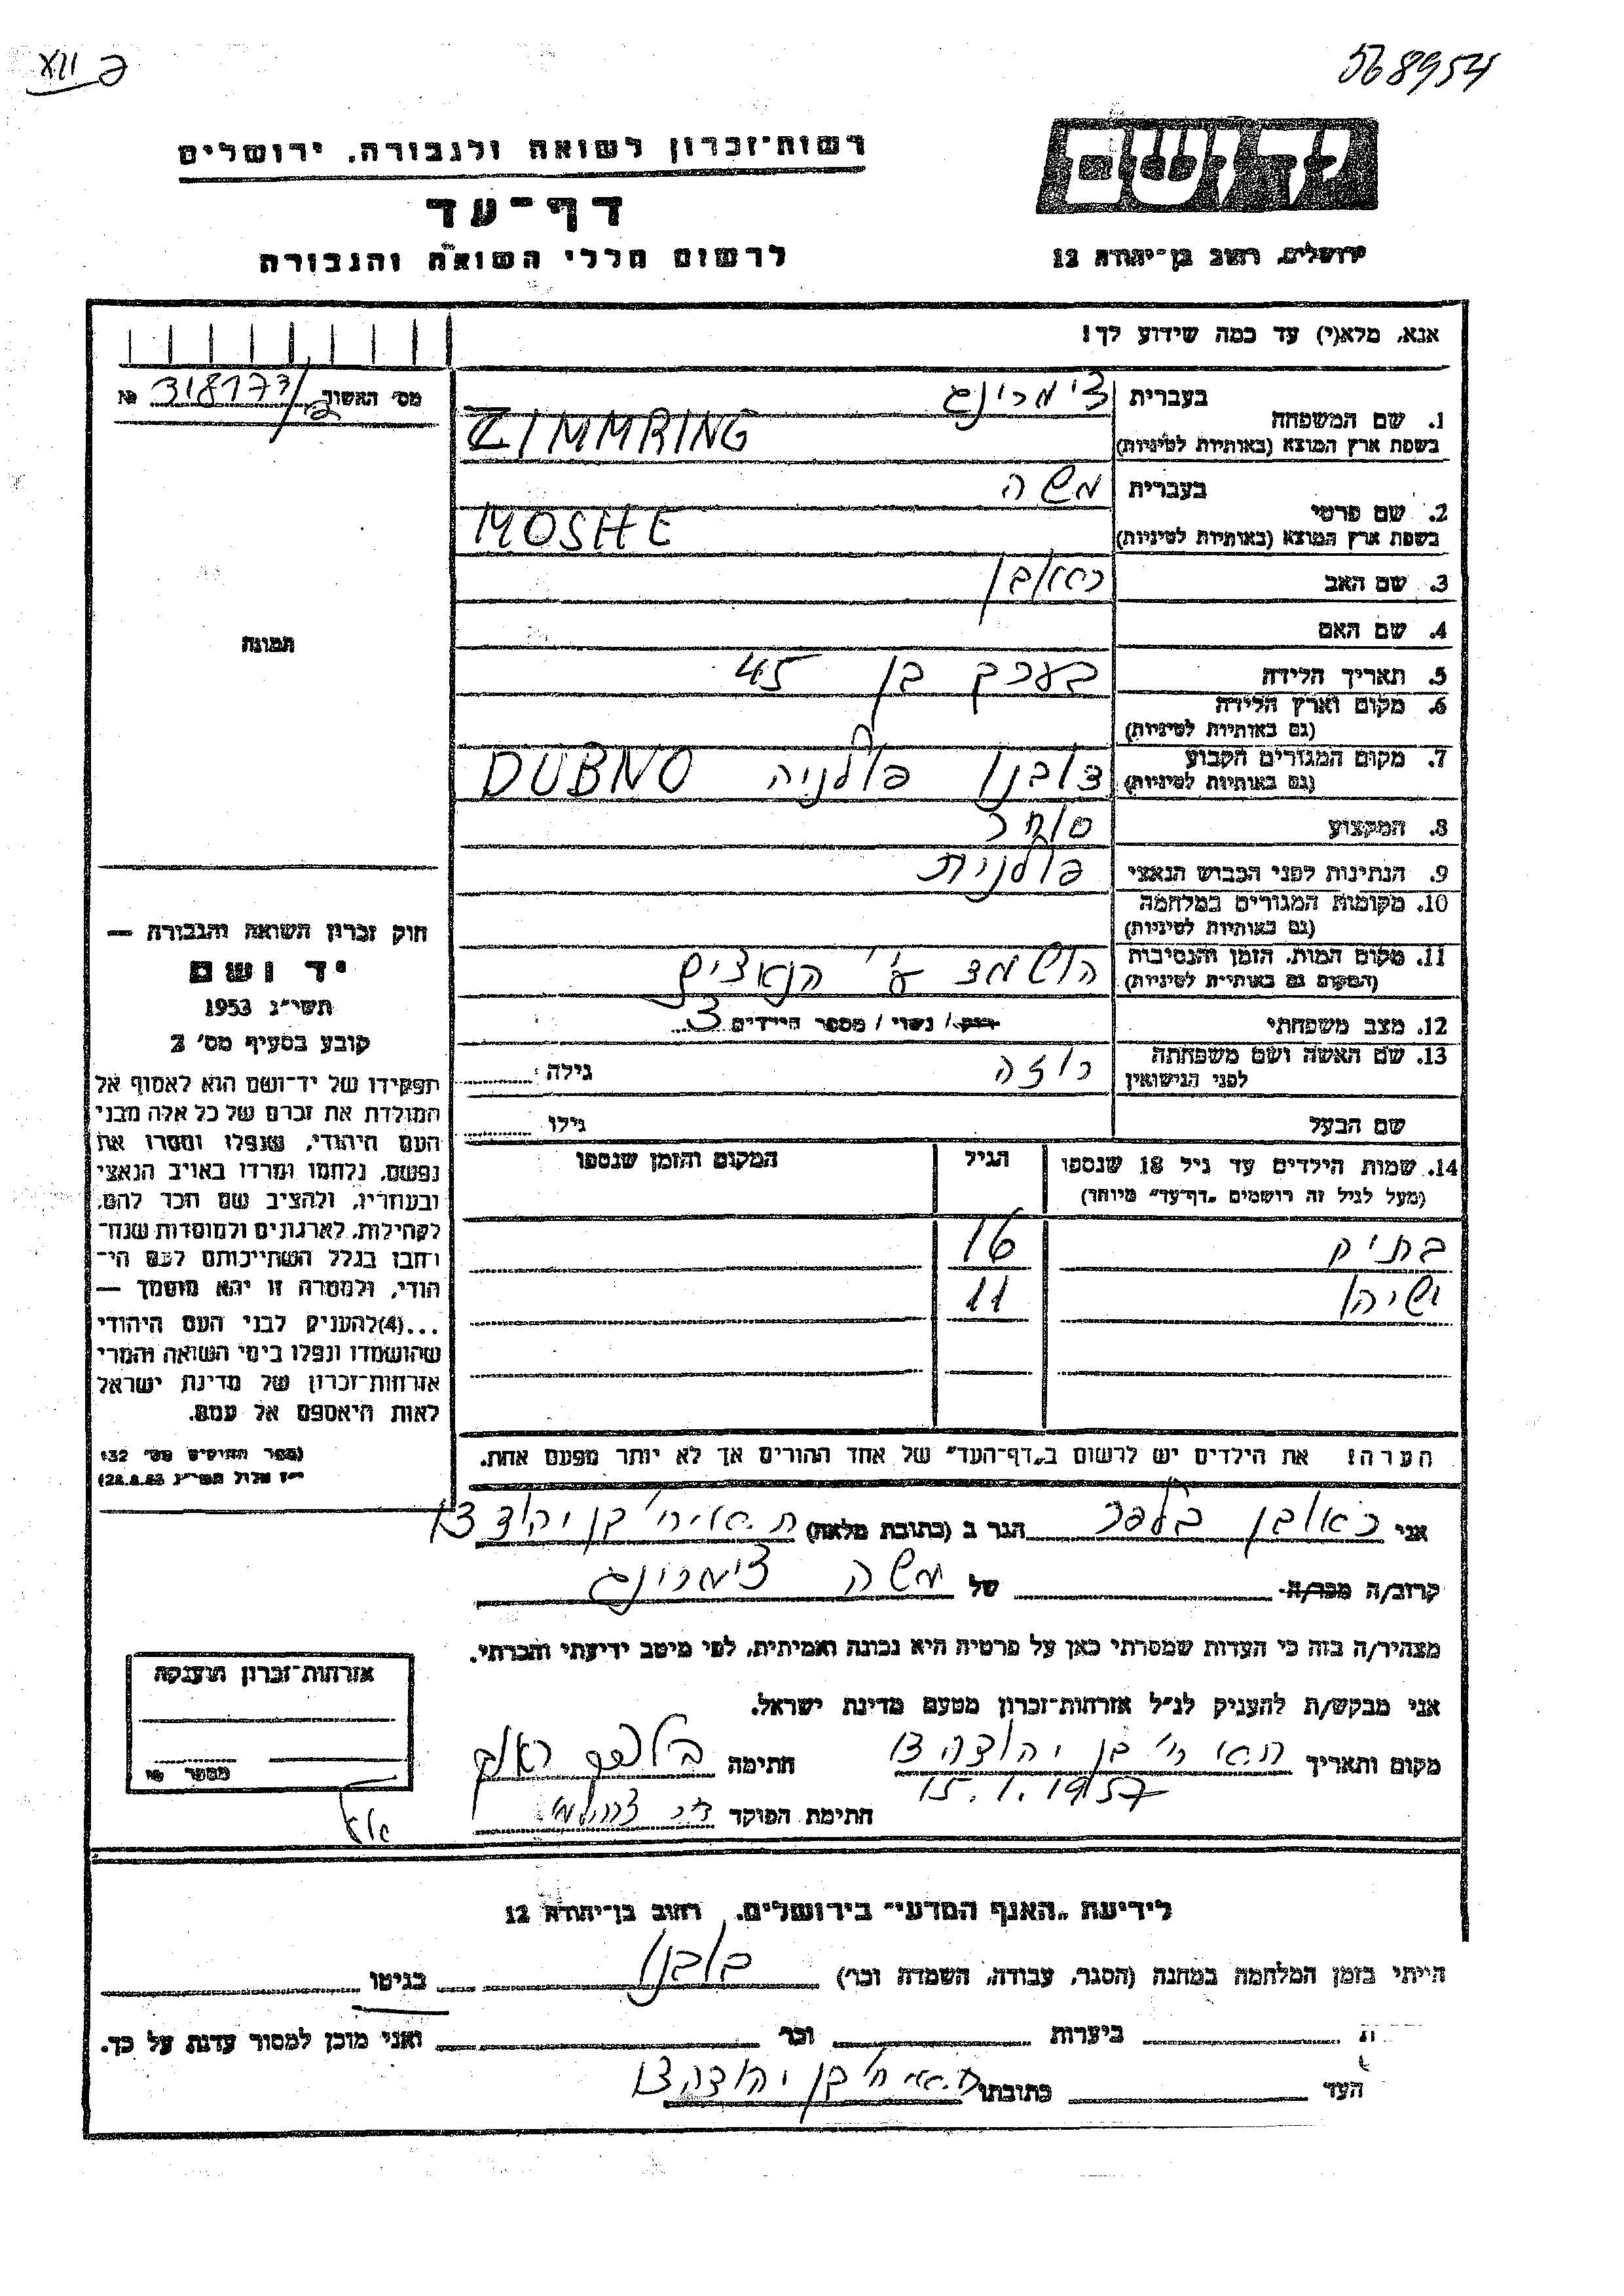 568954
XVII
רשות־זכרון לשואה ולגבורה, ירושלים
יד ושם
דף־עד
ירושלים, רחוב בן־יהודה 12
לרשום חללי השואה והגבורה
אנא, מלא(י) עד כמה שידוע לך!
מס׳ האשור 318173 №
1. שם המשפחה
בעברית צימרינג
בשפת ארץ המוצא (באותיות לטיניות) ZIMMRING
2. שם פרטי
בעברית משה
בשפת ארץ המוצא (באותיות לטיניות) MOSHE
3. שם האב ראובן
4. שם האם
תמונה
5. תאריך הלידה בערך בן 45
6. מקום וארץ הלידה
(גם באותיות לטיניות)
7. מקום המגורים הקבוע דובנו פולניה DUBNO
(גם באותיות לטיניות)
8. המקצוע סוחר
9. הנתינות לפני הכבוש הנאצי פולנית
10. מקומות המגורים במלחמה
(גם באותיות לטיניות)
11. מקום המות, הזמן והנסיבות הושמד ע״י הנאצים
(המקום גם באותיות לטיניות)
12. מצב משפחתי רוק/ נשוי / מספר הילדים 3
13. שם האשה ושם משפחתה רוזה גילה
לפני הנישואין
שם הבעל גילו
14. שמות הילדים עד גיל 18 שנספו הגיל המקום והזמן שנספו
(מעל לגיל זה רושמים „דף־עד״ מיוחד)
16
11
הערה! את הילדים יש לרשום ב„דף־העד״ של אחד ההורים אך לא יותר מפעם אחת.
חוק זכרון השואה והגבורה —
יד ושם
תשי״ג 1953
קובע בסעיף מס׳ 2
תפקידו של יד־ושם הוא לאסוף אל
המולדת את זכרם של כל אלה מבני
העם היהודי, שנפלו ומסרו את
נפשם, נלחמו ומרדו באויב הנאצי
ובעוזריו, ולהציב שם וזכר להם,
לקהילות, לארגונים ולמוסדות שנח־
רבו בגלל השתייכותם לעם הי־
הודי, ולמטרה זו יהא מוסמך —
...(4)להעניק לבני העם היהודי
שהושמדו ונפלו בימי השואה והמרי
אזרחות־זכרון של מדינת ישראל
לאות היאספם אל עמם.
(ספר החוקים מס׳ 132
י״ז אלול תשי״ג 28.8.53)
אני ראובן הגר ב (כתובת מלאה) ת״א רח׳ בן יהודה
קרוב/ה מכר/ה של משה צימרינג
מצהיר/ה בזה כי העדות שמסרתי כאן על פרטיה היא נכונה ואמיתית, לפי מיטב ידיעתי והכרתי.
אני מבקש/ת להעניק לנ״ל אזרחות־זכרון מטעם מדינת ישראל.
מקום ותאריך ת״א רח׳ בן יהודה חתימה
15.1.1957
חתימת הפוקד
אזרחות־זכרון הוענקה
מספר
לידיעת „האגף המדעי״ בירושלים, רחוב בן־יהודה 12
הייתי בזמן המלחמה במחנה (הסגר, עבודה, השמדה וכו׳) בגיטו
ביערות וכו׳ ואני מוכן למסור עדות על כך.
העד כתובתו ת״א רח׳ בן יהודה